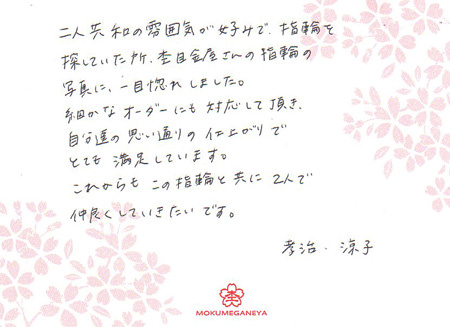 二人共和の雰囲気が好みで、指輪を
探していた所、杢目金屋さんの指輪の
写真に、一目惚れしました。
細かなオーダーにも対応して頂き、
自分達の思い通りの仕上がりで
とても満足しています。
これからもこの指輪と共に2人で
仲良くしていきたいです。
孝治・涼子
MOKUMEGANEYA